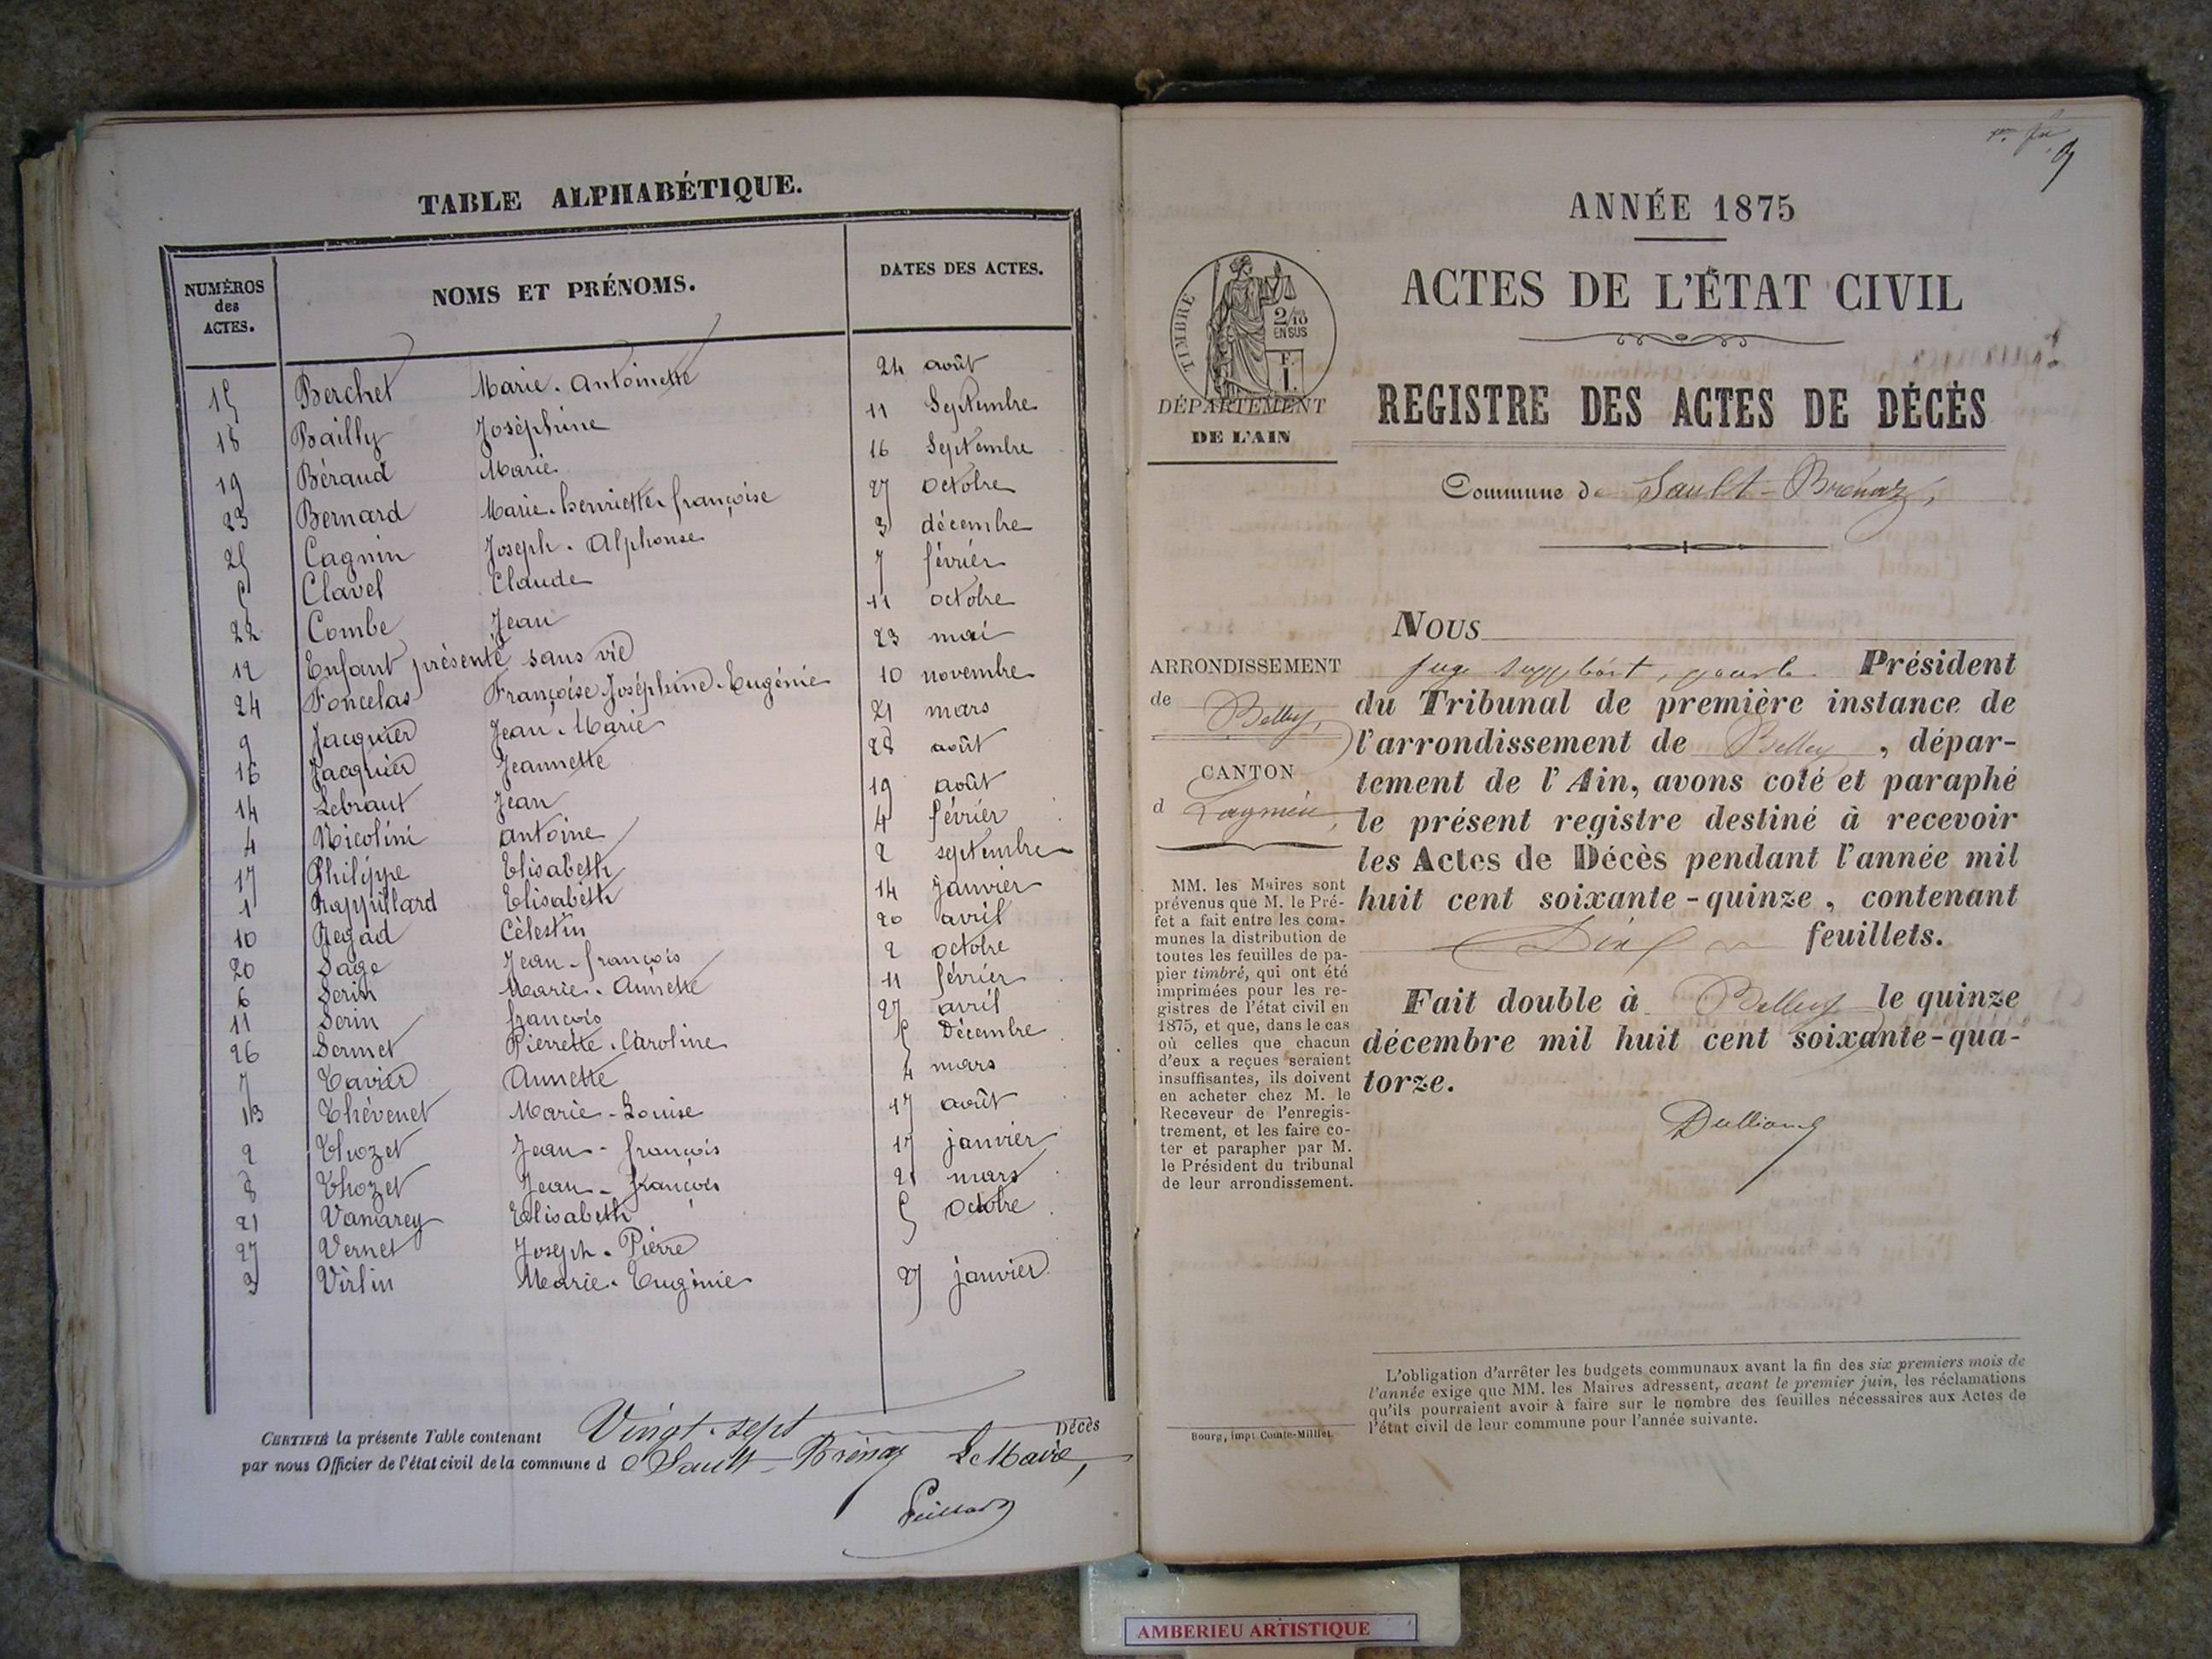 TABLE ALPHABÉTIQUE.
NUMÉROS des ACTES. NOMS ET PRÉNOMS. DATES DES ACTES.
15 Berchet Marie. Antoinette 24 août
18 Bailly Joséphine 11 Septembre
19 Béraud Marie 16 Septembre
23 Bernard Marie. henriette. françoise 27 octobre
25 Cagnin Joseph. Alphonse 3 décembre
5 Clavel Claude 7 février
22 Combe Jean 11 octobre
12 Enfant présenté sans vie 23 mai
24 Foncelas Françoise Joséphine. Eugénie 10 novembre
9 Jacquier Jean. Marie 21 mars
16 Jacquier Jeannette 28 août
14 Lebraut Jean 19 août
4 Nicolini antoine 4 février
17 Philippe Elisabeth 2 septembre
1 Rappillard Elisabeth 14 janvier
10 Regad Célestin 20 avril
20 Sage Jean. françois 2 octobre
6 Serin Marie. Annette 11 février
11 Serin françois 27 avril
26 Sermet Pierrette. Caroline 5 Décembre
7 Tavier Annette 4 mars
13 Thévenet Marie-Louise 17 août
2 Thozet Jean-françois 17 janvier
8 Thozet Jean-françois 21 mars
21 Vamarey Elisabeth 5 octobre
27 Vernet Joseph. Pierre
3 Virlin Marie. Eugénie 27 janvier
CERTIFIÉ la présente Table contenant Vingt-sept Décès
par nous Officier de l'état civil de la commune d e Sault-Brénaz Le Maire,
ANNÉE 1875
ACTES DE L'ÉTAT CIVIL
TIMBRE
2/10 EN SUS
DÉPARTEMENT
DE L'AIN
REGISTRE DES ACTES DE DÉCÈS
Commune de Sault-Brénaz,
ARRONDISSEMENT
de Belley,
CANTON
d Lagnieu,
MM. les Maires sont
prévenus que M. le Pré-
fet a fait entre les com-
munes la distribution de
toutes les feuilles de pa-
pier timbré, qui ont été
imprimées pour les re-
gistres de l'état civil en
1875, et que, dans le cas
où celles que chacun
d'eux a reçues seraient
insuffisantes, ils doivent
en acheter chez M. le
Receveur de l'enregis-
trement, et les faire co-
ter et parapher par M.
le Président du tribunal
de leur arrondissement.
Bourg, impr. Comte-Milliet.
NOUS
juge suppléant, pour le Président
du Tribunal de première instance de
l'arrondissement de Belley, dépar-
tement de l'Ain, avons coté et paraphé
le présent registre destiné à recevoir
les Actes de Décès pendant l'année mil
huit cent soixante-quinze, contenant
feuillets.
Fait double à Belley le quinze
décembre mil huit cent soixante-qua-
torze.
L'obligation d'arrêter les budgets communaux avant la fin des six premiers mois de
l'année exige que MM. les Maires adressent, avant le premier juin, les réclamations
qu'ils pourraient avoir à faire sur le nombre des feuilles nécessaires aux Actes de
l'état civil de leur commune pour l'année suivante.
AMBERIEU ARTISTIQUE